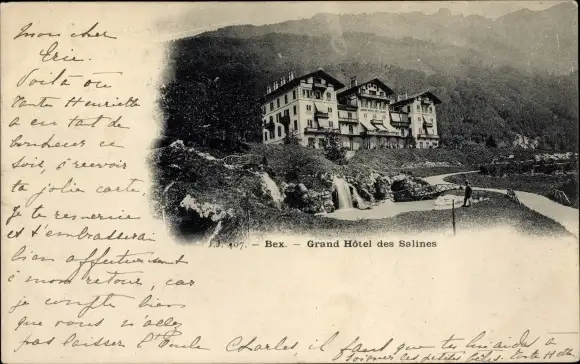 mon cher
Eric.
Voilà où
Tante Henriette
a eu tant de
bonheur ce
soir, à recevoir
ta jolie carte,
Je te remercie
et t'embrasserai
bien affectueusement
à mon retour, car
je compte bien
que vous n'allez
pas laisser l'Oncle
Charles, il faut que tu m'aides à
soigner ces petits Tante Hte
J.J. 407. - Bex. - Grand Hôtel des Salines